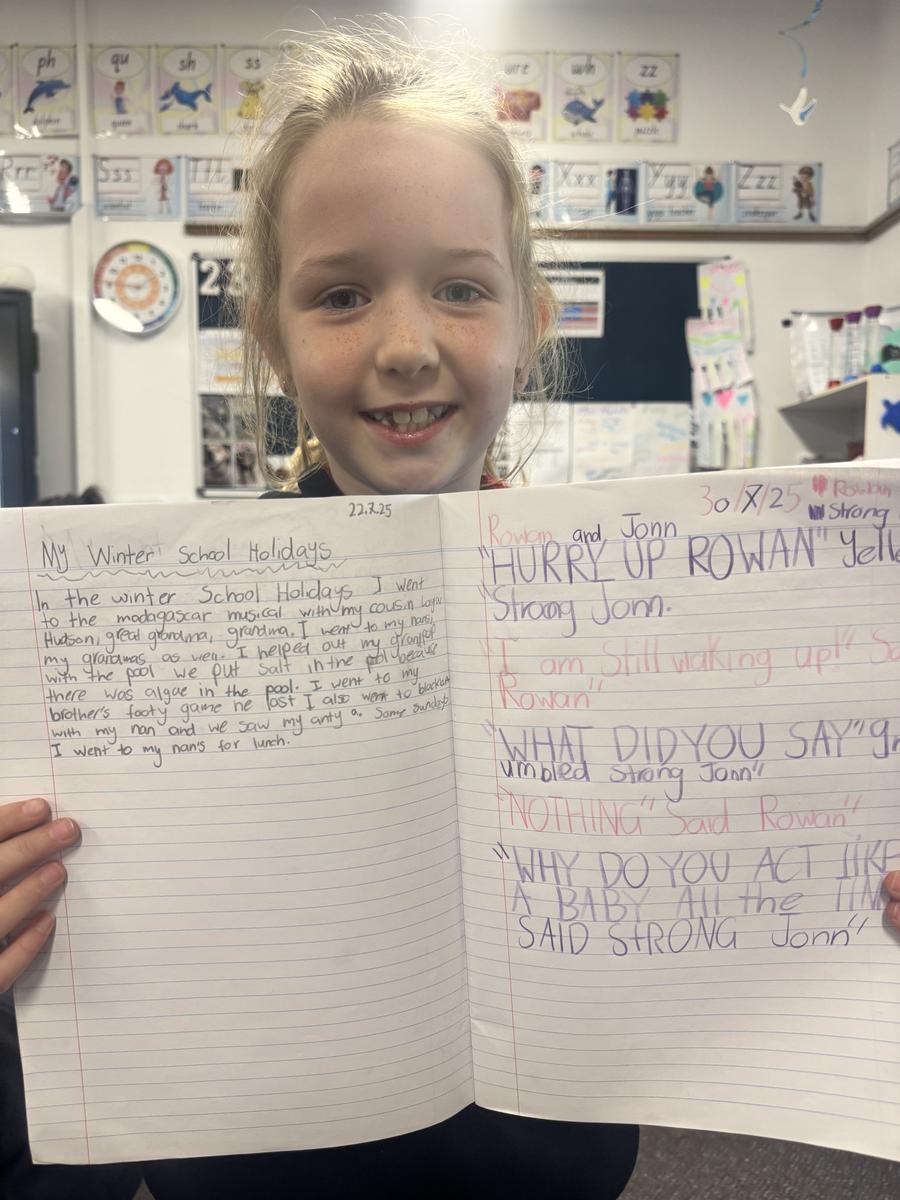 ph
qu
sh
ss
ure
wh
zz
dolphin
queen
shark
whale
puzzle
Rrr
Sss
Xxx
Yyy
Zzz
22.7.25
My Winter School Holidays
In the winter School Holidays I went
to the madagascar musical with my cousin
Hudson, great grandma, grandma. I went to my nans,
my grandmas as well. I helped out my grandpop
with the pool we put salt in the pool because
there was algae in the pool. I went to my
brother's footy game he lost I also went to
with my nan and we saw my anty a. Some sundays
I went to my nan's for lunch.
30/7/25
Rowan
Strong
Rowan and Jonn
"HURRY UP ROWAN" Yell
"Strong Jonn.
"I am Still waking up!" Sa
Rowan"
"WHAT DID YOU SAY" gr
umbled Strong Jonn"
"NOTHING" Said Rowan"
"WHY DO YOU ACT lIKE
A BABY All the
SAID StRONG Jonn"